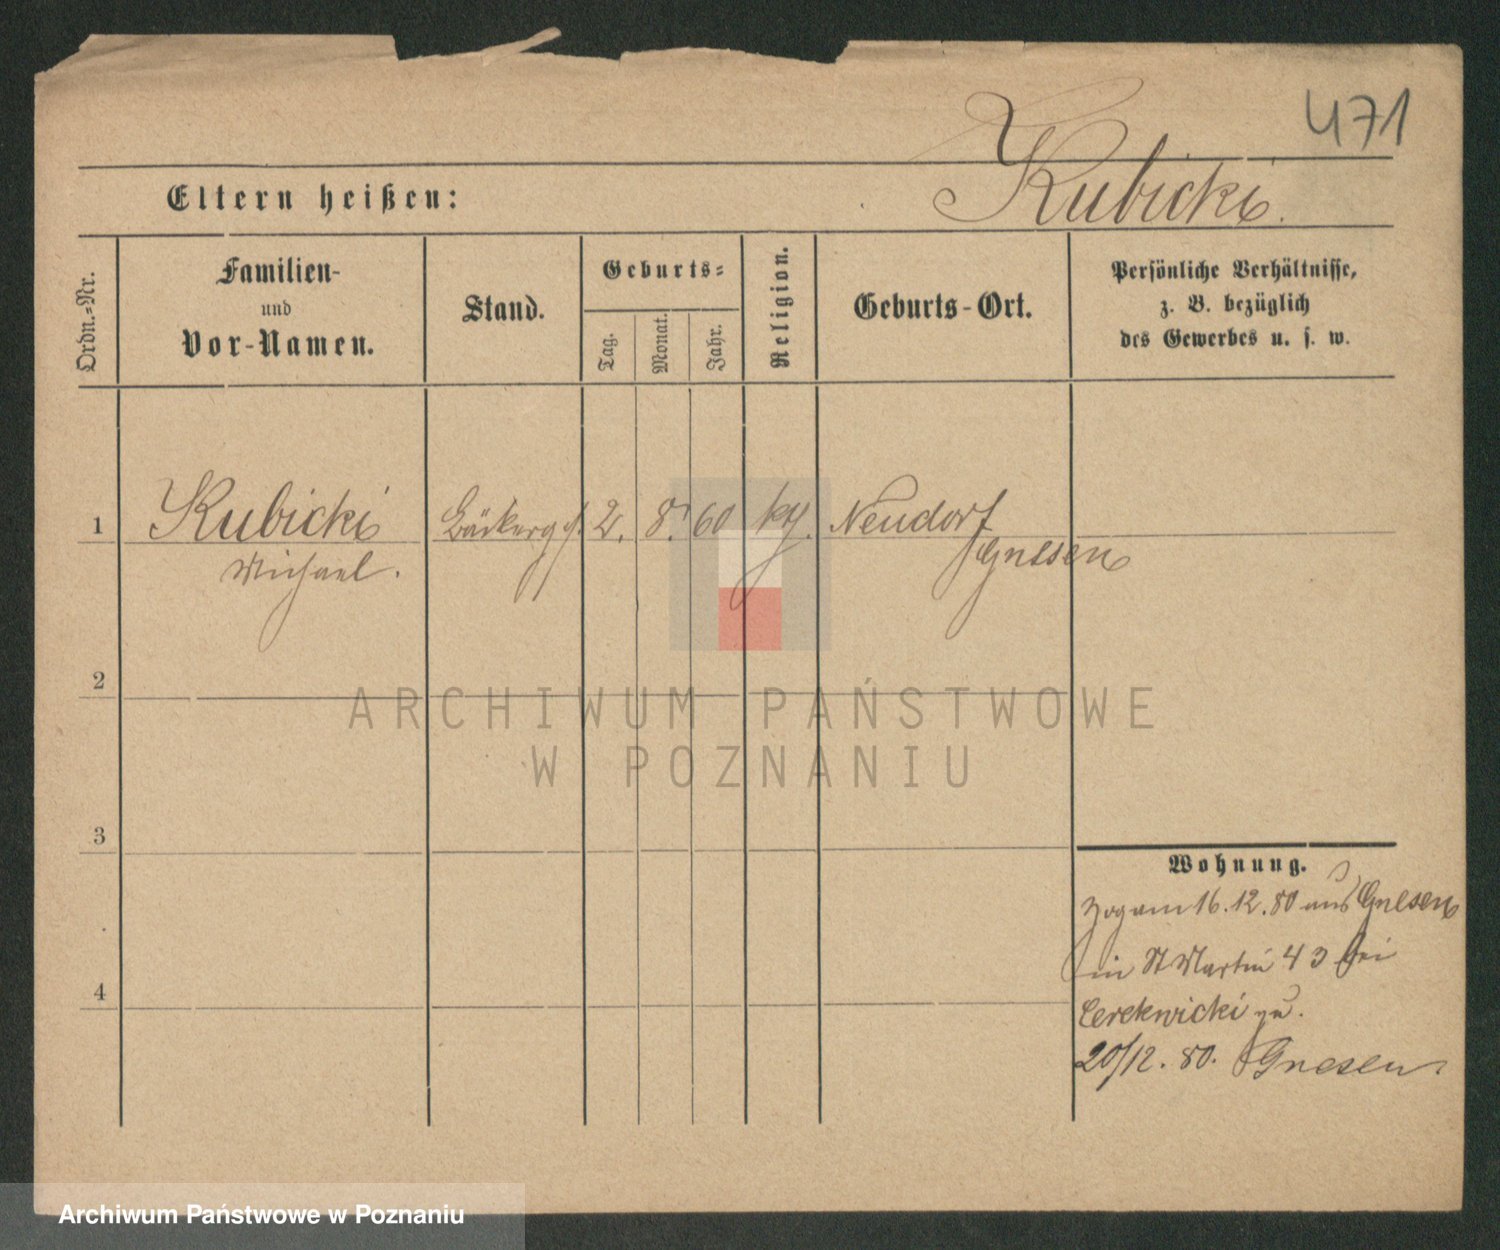 471
Kubicki.
Eltern heißen:
Ordn.-Nr.
Familien-
und
Vor-Namen.
Stand.
Geburts-
Tag.
Monat.
Jahr.
Religion.
Geburts-Ort.
Persönliche Verhältnisse,
z. B. bezüglich
des Gewerbes u. s. w.
1
Kubicki
Michael.
Bäckerges.
2.
8.
60
Neudorf
Gnesen
2
3
4
ARCHIWUM PAŃSTWOWE
W POZNANIU
Wohnung.
Zog am 16.12.80 aus Gnesen
in St Martin 43 bei
Cerekwicki zu.
20/12. 80. Gnesen
Archiwum Państwowe w Poznaniu